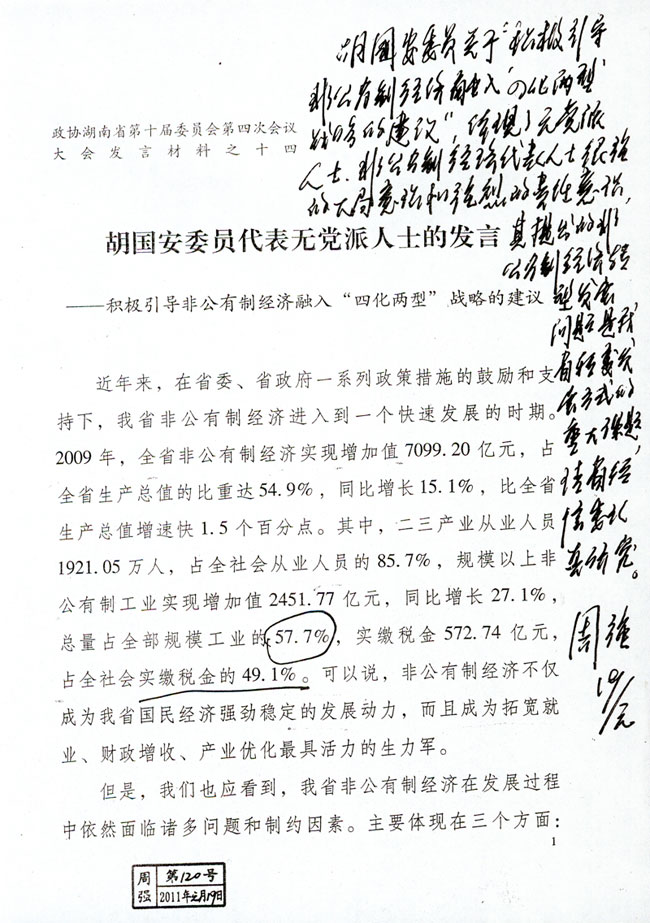 胡国安委员关于“积极引导
非公有制经济融入‘四化两型’
战略的建议”，体现了无党派
人士、非公有制经济代表人士很强
的大局意识和强烈的责任意识，
其提出的非
公有制经济转
型发展
问题是我
省转变发
展方式的
重大课题，
请省经
信委认
真研究。
周强
19/元
政协湖南省第十届委员会第四次会议
大会发言材料之十四
胡国安委员代表无党派人士的发言
——积极引导非公有制经济融入“四化两型”战略的建议
近年来，在省委、省政府一系列政策措施的鼓励和支
持下，我省非公有制经济进入到一个快速发展的时期。
2009年，全省非公有制经济实现增加值7099.20亿元，占
全省生产总值的比重达54.9%，同比增长15.1%，比全省
生产总值增速快1.5个百分点。其中，二三产业从业人员
1921.05万人，占全社会从业人员的85.7%，规模以上非
公有制工业实现增加值2451.77亿元，同比增长27.1%，
总量占全部规模工业的57.7%，实缴税金572.74亿元，
占全社会实缴税金的49.1%。可以说，非公有制经济不仅
成为我省国民经济强劲稳定的发展动力，而且成为拓宽就
业、财政增收、产业优化最具活力的生力军。
但是，我们也应看到，我省非公有制经济在发展过程
中依然面临诸多问题和制约因素。主要体现在三个方面：
1
周强 第120号
2011年元月19日